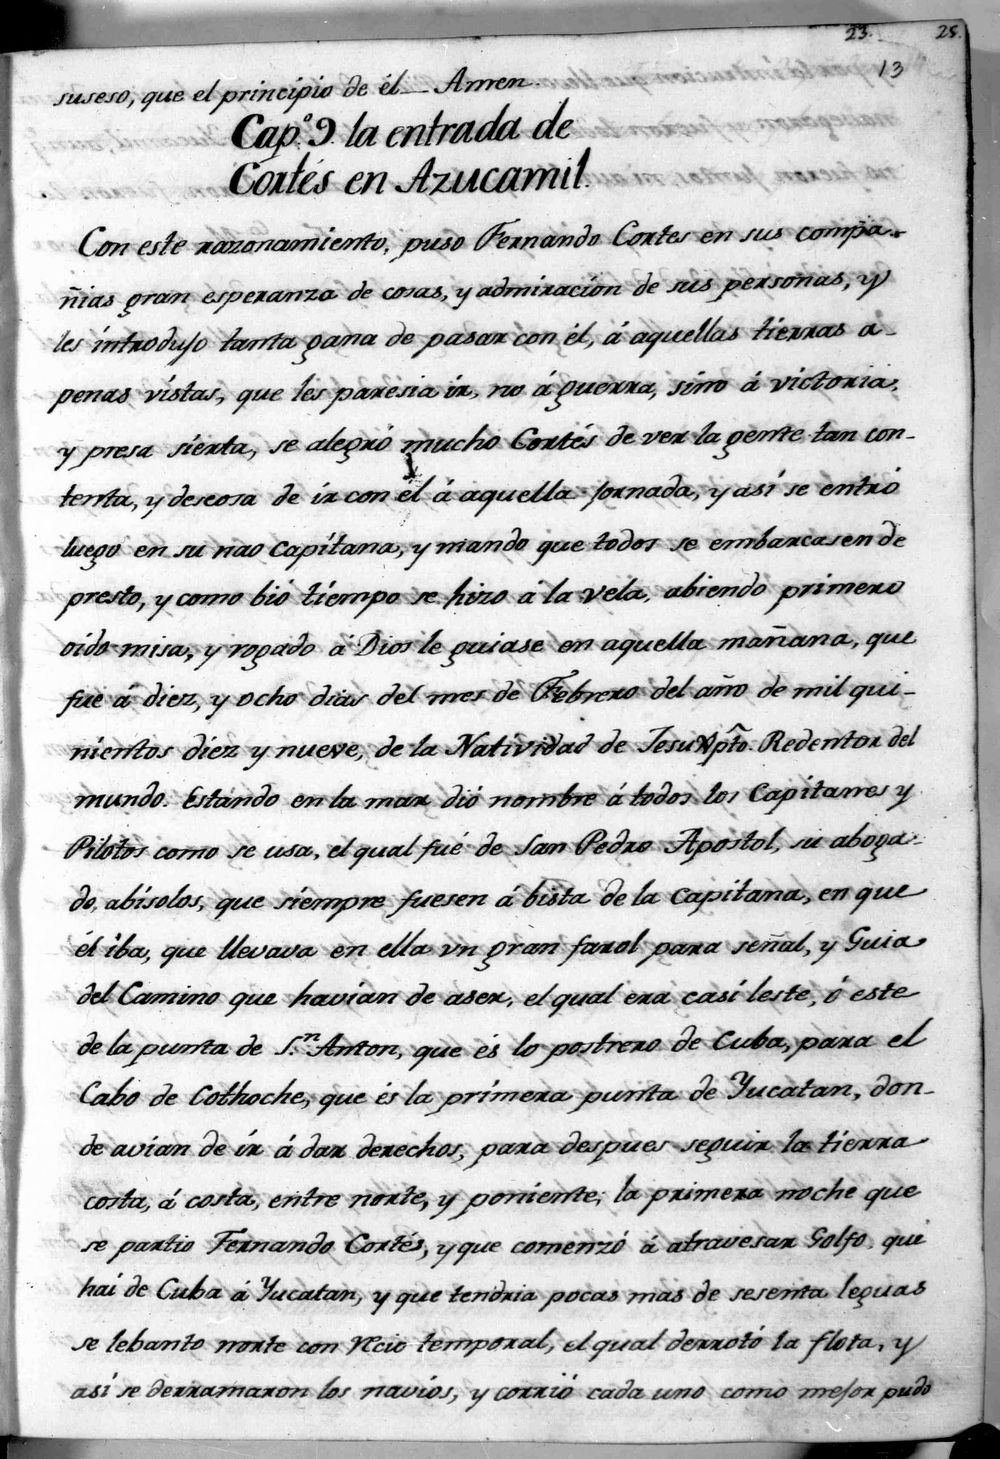 23. 28.
13
suseso, que el principio de él — Amen.
Cap.º 9. la entrada de
Cortés en Azucamil.
Con este razonamiento, puso Fernando Cortes en sus compa-
ñias gran esperanza de cosas, y admiración de sus personas, y
les introdujo tanta gana de pasar con él, á aquellas tierras a-
penas vistas, que les paresia ir, no á guerra, sino á victoria,
y presa sierta, se alegró mucho Cortés de ver la gente tan con-
tenta, y deseosa de ir con él á aquella jornada, y así se entró
luego en su nao Capitana, y mando que todos se embarcasen de
presto, y como bió tiempo se hizo á la vela, abiendo primero
oido misa, y rogado á Dios le guiase en aquella mañana, que
fué á diez, y ocho dias del mes de Febrero del año de mil qui-
nientos diez y nueve, de la Natividad de Jesu Xpto. Redentor del
mundo. Estando en la mar dió nombre á todos los Capitanes y
Pilotos como se usa, el qual fué de San Pedro Apostol, su aboga-
do, abisolos, que siempre fuesen á bista de la Capitana, en que
él iba, que llevava en ella vn gran farol para señal, y Guia
del Camino que havían de aser, el qual era casi leste, ó este
de la punta de S.n Anton, que és lo postrero de Cuba, para el
Cabo de Cothoche, que és la primera punta de Yucatan, don-
de avian de ir á dar derechos, para despues seguir la tierra
costa, á costa, entre norte, y poniente, la primera noche que
se partio Fernando Cortés, y que comenzó á atravesar Golfo, que
hai de Cuba á Yucatan, y que tendria pocas mas de sesenta leguas
se lebanto norte con recio temporal, el qual derrotó la flota, y
así se derramaron los navíos, y corrió cada uno como mejor pudo